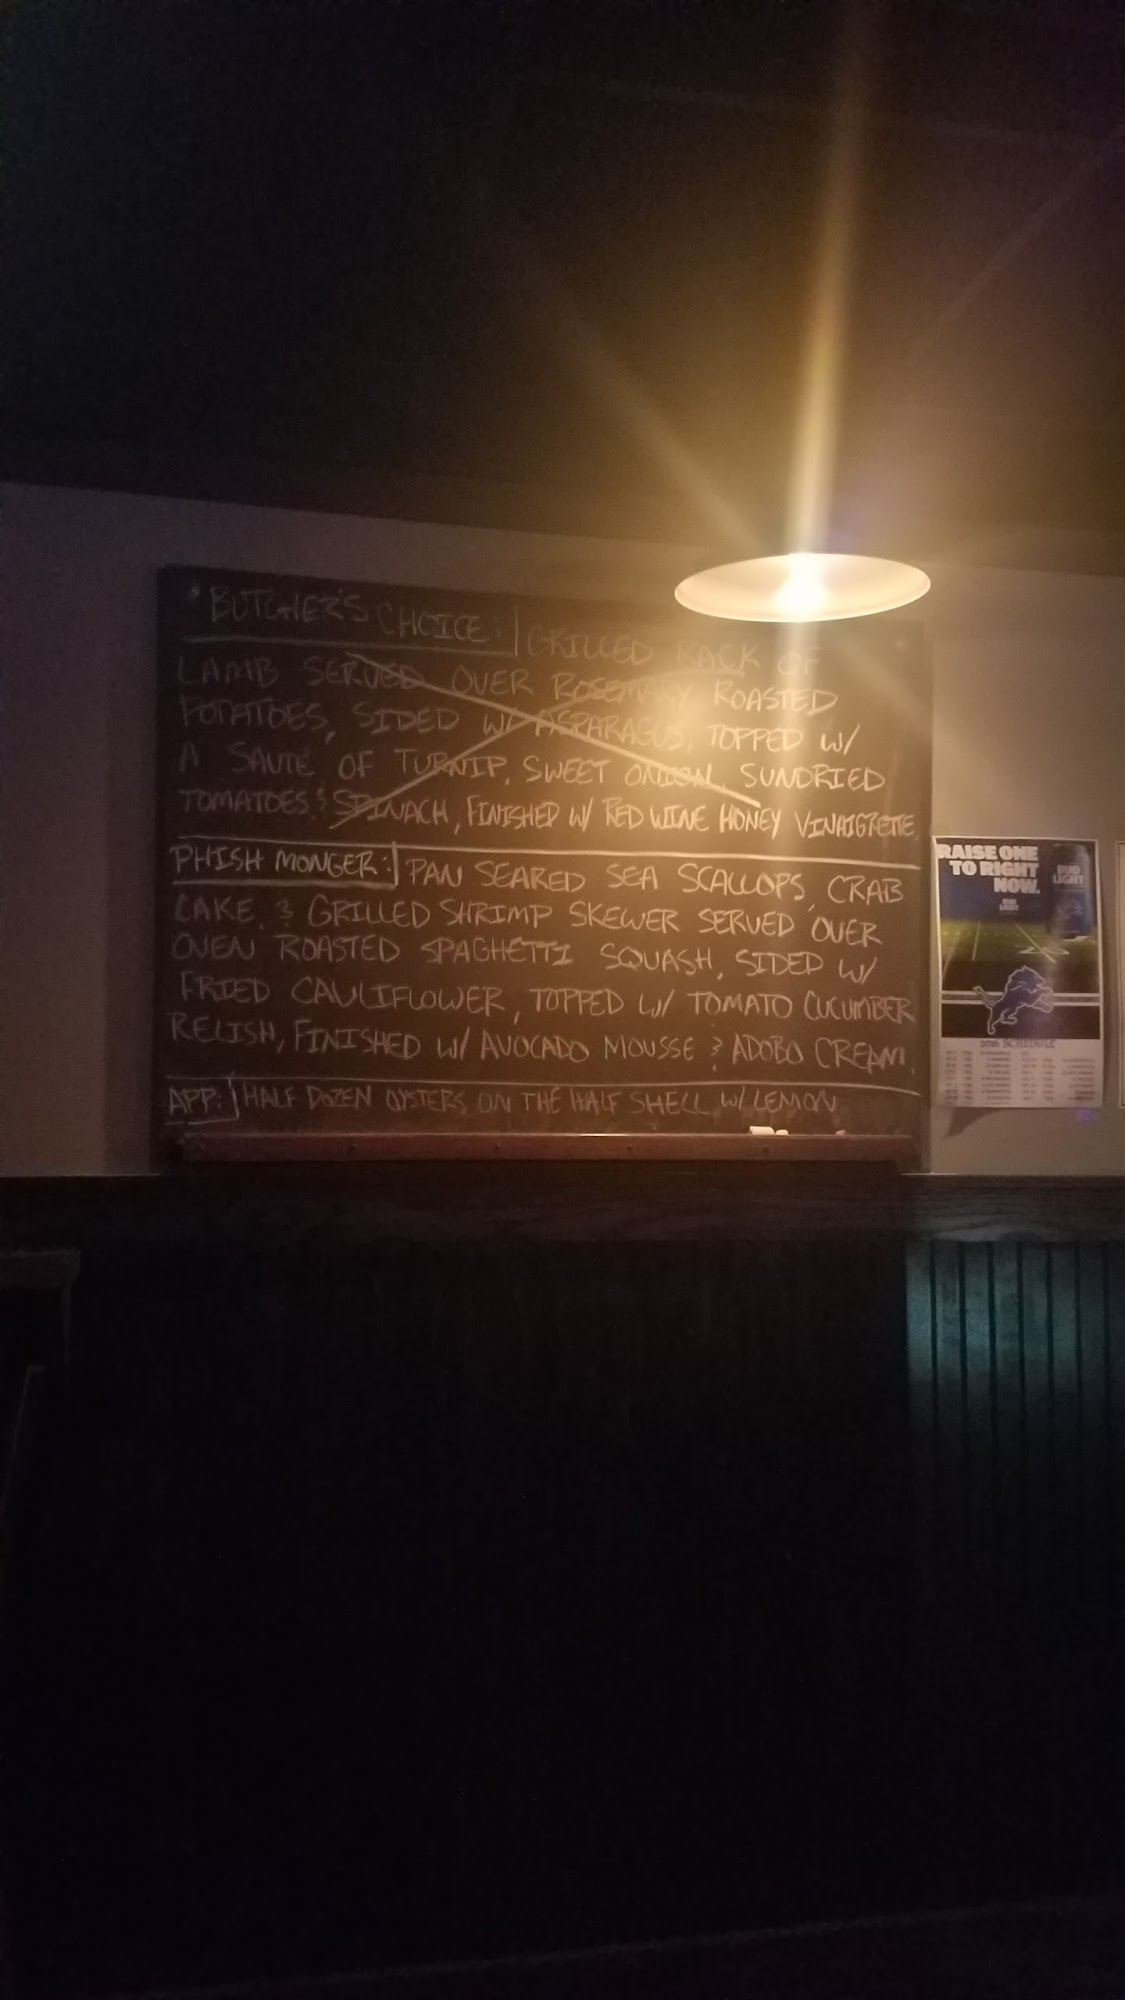 *BUTCHER'S CHOICE: GRILLED RACK OF
LAMB SERVED OVER ROSEMARY ROASTED
POTATOES, SIDED W/ ASPARAGUS, TOPPED W/
A SAUTE OF TURNIP, SWEET ONION, SUNDRIED
TOMATOES & SPINACH, FINISHED W/ RED WINE HONEY VINAIGRETTE
PHISH MONGER: PAN SEARED SEA SCALLOPS, CRAB
CAKE, & GRILLED SHRIMP SKEWER SERVED OVER
OVEN ROASTED SPAGHETTI SQUASH, SIDED W/
FRIED CAULIFLOWER, TOPPED W/ TOMATO CUCUMBER
RELISH, FINISHED W/ AVOCADO MOUSSE & ADOBO CREAM.
APP: HALF DOZEN OYSTERS ON THE HALF SHELL W/ LEMON
RAISE ONE
TO RIGHT
NOW.
BUD
LIGHT
BUD
LIGHT
2016 SCHEDULE